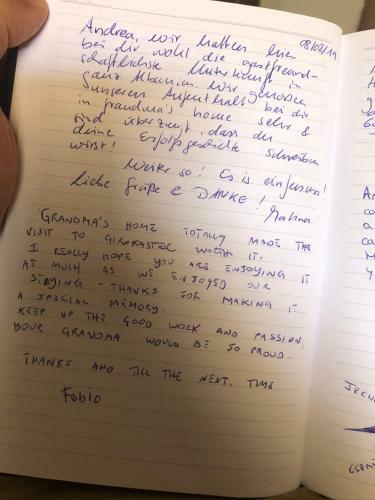 08/07/19
Andrea, wir hatten hier
bei dir wohl die gastfreund-
schaftlichste Unterkunft in
ganz Albanien. Wir genossen
unseren Aufenthalt bei dir
in grandma's home sehr &
sind überzeugt, dass du
deine Erfolfsgeschichte schreiben
wirst!
Weiter so! Es ist einfach
Liebe Grüße & DANKE!
GRANDMA'S HOME TOTALLY MADE THE
VISIT TO GIROKASTER WORTH IT.
I REALLY HOPE YOU ARE ENJOYING IT
AS MUCH AS WE ENJOYED OUR
STAYING - THANKS FOR MAKING IT
A SPECIAL MEMORY.
KEEP UP THE GOOD WORK AND PASSION,
YOUR GRANDMA WOULD BE SO PROUD.
THANKS AND TILL THE NEXT TIME
Fabio